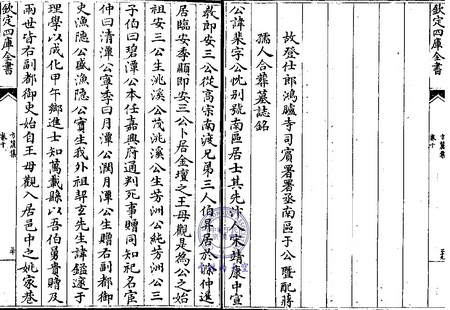 欽定四庫全書
方麓集
卷十
故登仕郎鴻臚寺司賓署署丞南區于公暨配蔣
孺人合葬墓誌銘
公諱棐字公忱別號南區居士其先汴人宋靖康中宣
教郎安三公從高宗南渡兄弟三人伯昇居於滁仲遂
居臨安季顯即安三公卜居金壇之王母觀是為公之始
祖安三公生洮溪公茂洮溪公生芳洲公純芳洲公三
子伯曰碧潭公本任嘉興府通判死事贈同知祀名宦
仲曰清潭公寧季曰月潭公潤月潭公生贈右副都御
史漁隱公盛漁隱公實生我外祖契玄先生諱鑑邃于
理學以成化甲午鄉進士知萬載縣以吾伯舅貴贈及
兩世皆右副都御史始自王母觀入居邑中之姚家巷
欽定四庫全書
方麓集
卷十